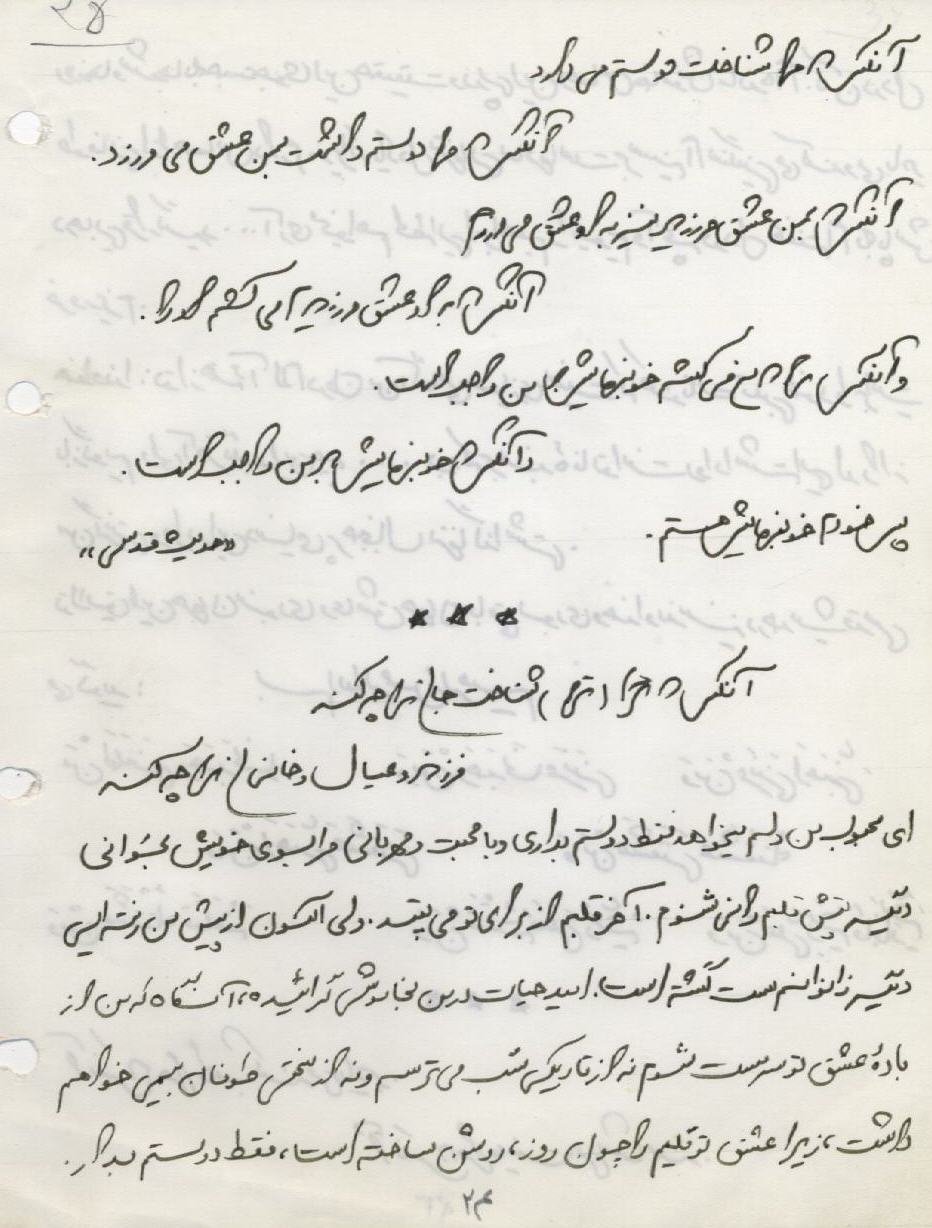 ۲۵
آنکس که مرا شناخت دوستم می دارد
آنکس که مرا دوستم داشت بمن عشق می ورزد.
آنکس که بمن عشق ورزید نیز به او عشق می ورزم
آنکس که به او عشق ورزیدم می کشم او را.
و آنکس را که من می کشم خونبهایش بر من واجب است.
و آنکس که خونبهایش بر من واجب است.
پس خودم خونبهایش هستم.
«حدیث قدسی»
* * *
آنکس که ترا شناخت جان را چه کند
فرزند و عیال و خانمان را چه کند
ای محبوب من دلم میخواهد فقط دوستم بداری و با محبت و مهربانی مرا بسوی خویش بخوانی
دیگر تپش قلبم را نمی شنوم. آخر قلبم از برای تو می تپد. ولی اکنون از پیش من رفته ای
دیگر زانوانم سست گشته است. امید حیات در من بخاموشی گرائیده، آنگاه که من از
بادهٔ عشق تو سرمست شوم نه از تاریکی شب می ترسم و نه از سختی طوفان بیمی خواهم
داشت، زیرا عشق تو قلبم را چون روز، روشن ساخته است، فقط دوستم بدار.
۲۴